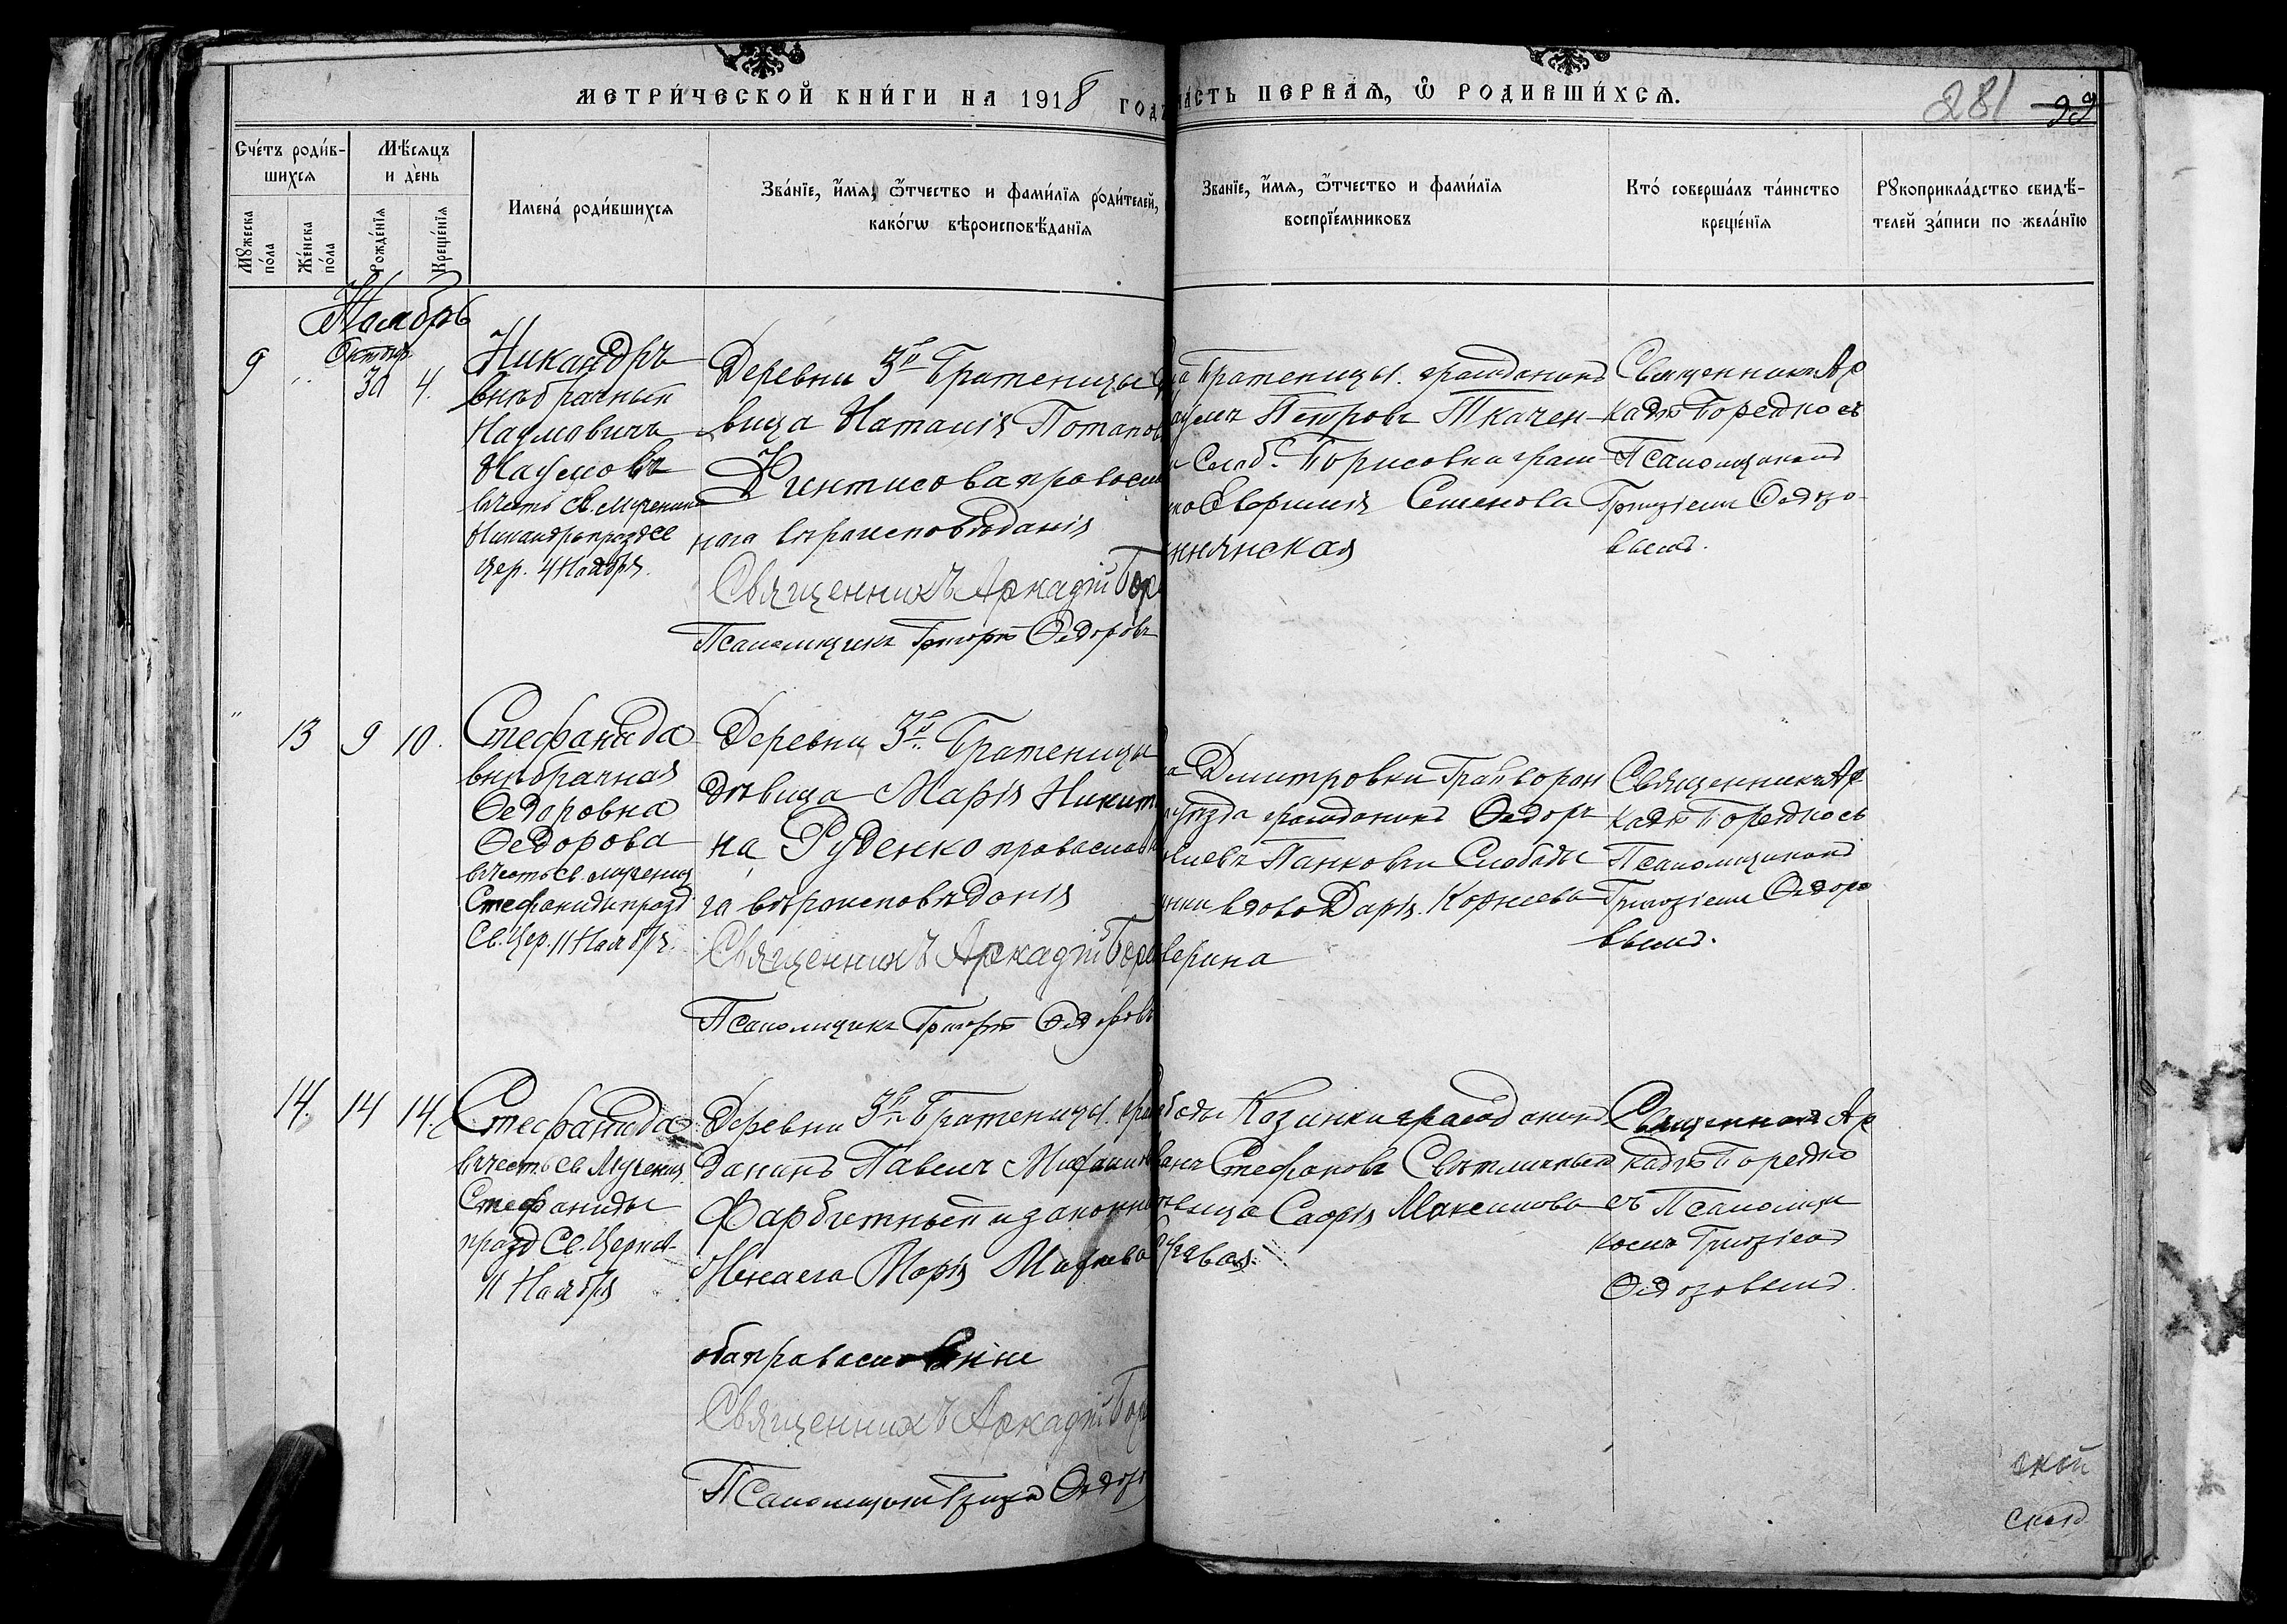 МЕТРИ́ЧЕСКОЙ КНИ́ГИ НА 1918 ГОДЪ
ЧА́СТЬ ПЕ́РВАѦ, Ѡ҆ РОДИ́ВШИХСѦ.
281
Сче́тъ роди́в-
шихсѧ
Мѣ́сѧцъ
и де́нь
Мꙋ́жеска
по́ла
Же́нска
по́ла
Рожде́нїѧ
Креще́нїѧ
Имена́ роди́вшихсѧ
Зва́нїе, и҆́мѧ, ѻ҆́тчество и фами́лїѧ роди́телей,
како́гѡ вѣроисповѣ́данїѧ
Зва́нїе, и҆́мѧ, ѻ҆́тчество и фами́лїѧ
воспрїе́мниковъ
Кто́ соверша́лъ та́инство
креще́нїѧ
Рꙋкоприкла́дство свидѣ́-
телей за́писи по жела́нїю
Ноябрь
9
Октябр.
30
4.
Никандръ
внѣбрачный
Наумовичъ
Наумовъ
въчесть св. мученика
Никандра празд св
цер. 4 Ноября.
Деревни 3й Братеницы
вица Наталія Потапов
православ
наго вѣроисповѣданія
Священникъ Аркадій Бор
Псаломщикъ Григорій Ѳедоровъ
Братеницы. гражданинъ
Наумъ Петровъ Ткачен-
Слоб. Борисовки граж
Евфимія Семенова
Священникъ Ар
кадій Боредко съ
Псаломщикомъ
Григоріемъ Ѳедоро-
вымъ.
13
9
10.
Стефанида
внѣбрачная
Ѳедоровна
Ѳедорова
въчесть св. мучениц
Стефаниды празд
Св. Цер. 11 Ноября.
Деревни 3й Братеницы
дѣвица Марія Никит
на Руденко православн
га вѣроисповѣданія
Священникъ Аркадій Боре
Псаломщикъ Григорій Ѳедоровъ
Дмитровки Грайворон
уѣзда гражданинъ Ѳедоръ
Панковъ и Слободы
вдова Дарія Корнева
верина
Священникъ Ар
кадій Боредко съ
Псаломщикомъ
Григоріемъ Ѳедоро
вымъ.
14.
14
14.
Стефанида
въчесть св Мучениц
Стефаниды
празд Св. Церков-
11 Ноября
Деревни 3й Братеницы. граж
данинъ Павелъ
Фарбетный и законн
Жена его Марія
оба православные
Священникъ Аркадій Бор
Псаломщикъ Ѳедоро
боды Козинки гражданинъ
Стефановъ Свѣтличный
вица Софія Максимова
Священникъ Ар
кадій Боредко
съ Псаломщи
комъ Григоріемъ
Ѳедоровымъ.
ской